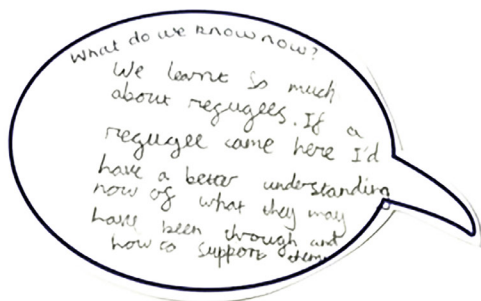 What do we know now?
We learnt so much
about regugees. If a
regugee came here I'd
have a better understanding
now of what they may
have been through and
how to support them